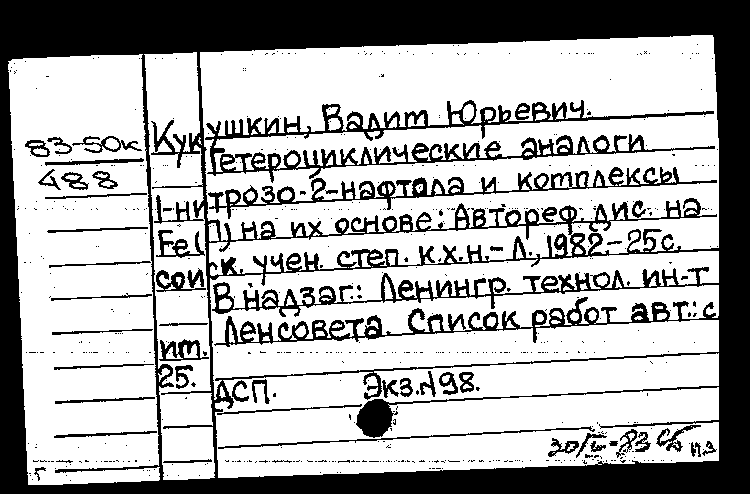 83-50к
488
Кукушкин, Вадим Юрьевич.
Гетероциклические аналоги
1-нитрозо-2-нафтола и комплексы
Fe(П) на их основе: Автореф. дис. на
соиск. учен. степ. к.х.н.-Л., 1982.-25с.
В надзаг.: Ленингр. технол. ин-т
им. Ленсовета. Список работ авт.: с
25.
ДСП. Экз.№98.
20/II-83